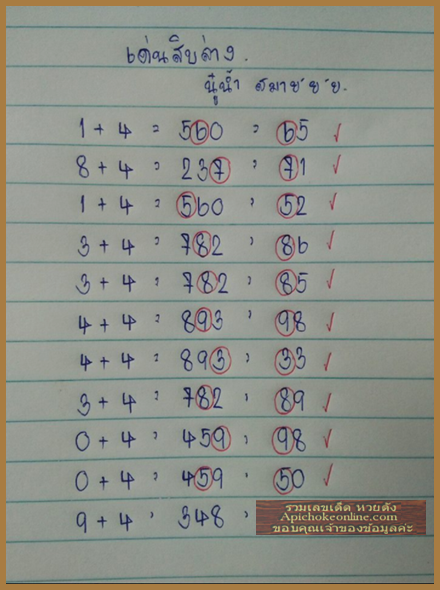 เด่นสิบล่าง.
ปูน้ำ สมาชายย.
1 + 4 = 560 = 65 ✓
8 + 4 = 237 = 71 ✓
1 + 4 = 560 = 52 ✓
3 + 4 = 782 = 86 ✓
3 + 4 = 782 = 85 ✓
4 + 4 = 893 = 98 ✓
4 + 4 = 893 = 33 ✓
3 + 4 = 782 = 89 ✓
0 + 4 = 459 = 98 ✓
0 + 4 = 459 = 50 ✓
9 + 4 = 348 =
รวมเลขเด็ด หวยดัง
Apichokeonline.com
ขอบคุณเจ้าของข้อมูลค่ะ